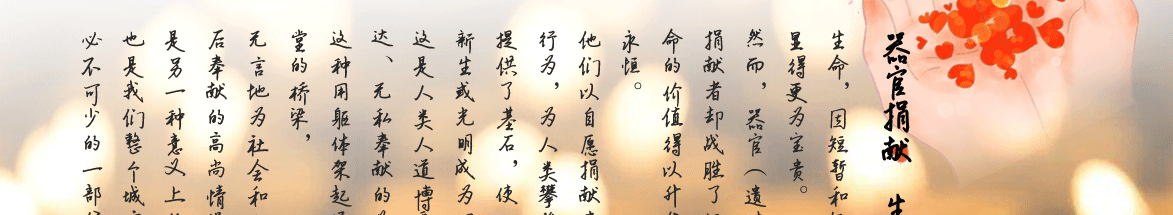 器官捐献
生命，因短暂和
显得更为宝贵。
然而，器官（遗
捐献者却战胜了
命的价值得以升
永恒。
他们以自愿捐献
行为，为人类攀
提供了基石，使
新生或光明成为
这是人类人道博
达、无私奉献的
这种用躯体架起
堂的桥梁，
无言地为社会和
后奉献的高尚情
是另一种意义上
也是我们整个城
必不可少的一部